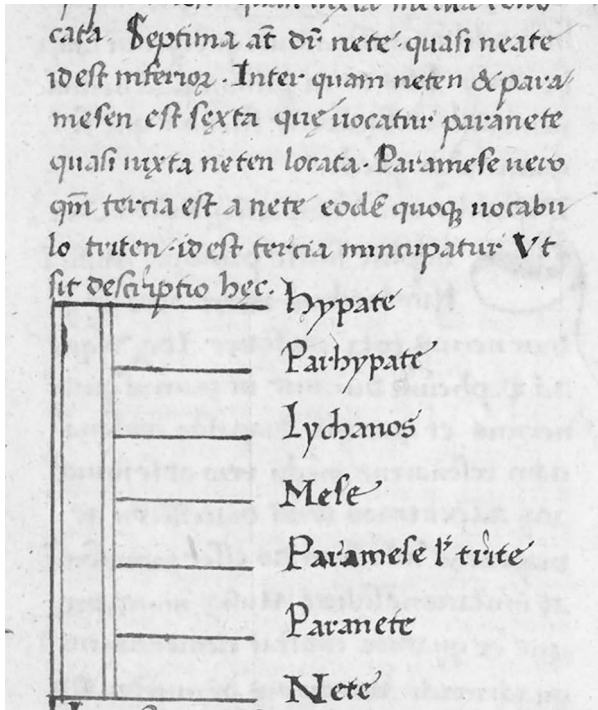 cata. Septima aт̄ dr̄ nete quasi neate
id est inferior. Inter quam neten & para
mesen est sexta que uocatur paranete
quasi iuxta neten locata. Paramese uero
qm̄ tercia est a nete eodē quoq uocabu
lo triten id est tercia nuncupatur Vt
sit descriptio hec.
hypate
Parhypate
Lychanos
Mese
Paramese ł trite
Paranete
Nete